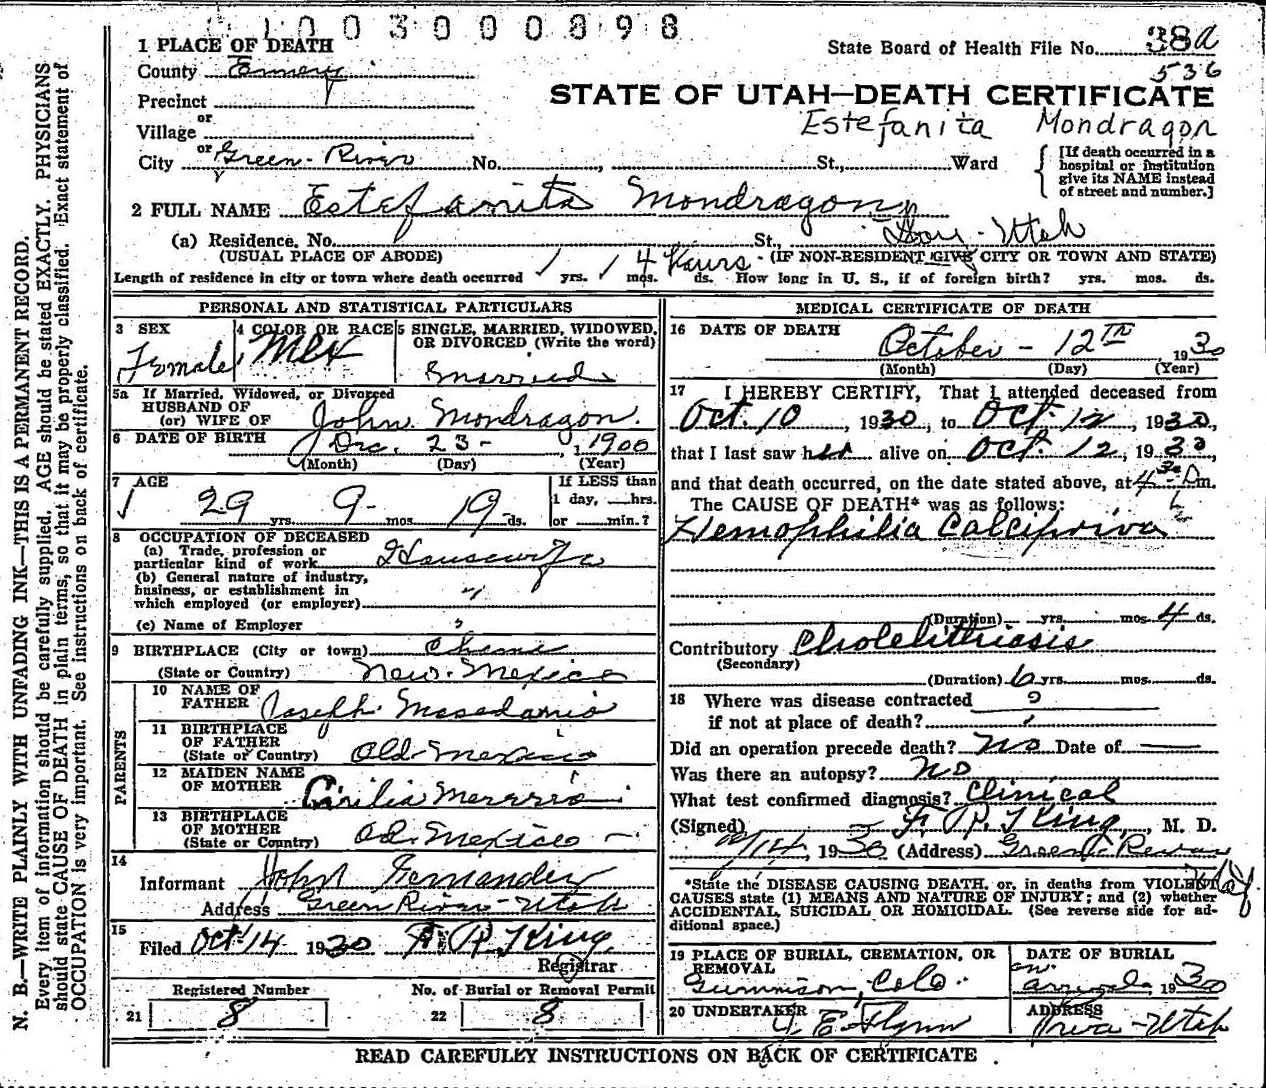 1003000898
1 PLACE OF DEATH
State Board of Health File No. 38a
County Emery
536
Precinct
STATE OF UTAH—DEATH CERTIFICATE
or
Village
Estefanita Mondragon
or
City Green River No. , St., Ward
[If death occurred in a
hospital or institution
give its NAME instead
of street and number.]
2 FULL NAME Estefanita Mondragon
(a) Residence, No. St., Utah
(USUAL PLACE OF ABODE) (IF NON-RESIDENT GIVE CITY OR TOWN AND STATE)
Length of residence in city or town where death occurred yrs. mos. 4 hours ds. How long in U. S., if of foreign birth? yrs. mos. ds.
PERSONAL AND STATISTICAL PARTICULARS
3 SEX
Female
4 COLOR OR RACE
Mex
5 SINGLE, MARRIED, WIDOWED,
OR DIVORCED (Write the word)
Married
5a If Married, Widowed, or Divorced
HUSBAND OF
(or) WIFE OF John Mondragon
6 DATE OF BIRTH Dec. 23 - , 1900
(Month) (Day) (Year)
7 AGE
29 yrs. 9 mos 19 ds.
If LESS than
1 day, hrs.
or min.?
8 OCCUPATION OF DECEASED
(a) Trade, profession or
particular kind of work Housewife
(b) General nature of industry,
business, or establishment in
which employed (or employer) "
(c) Name of Employer "
9 BIRTHPLACE (City or town)
(State or Country) New Mexico
PARENTS
10 NAME OF
FATHER Joseph
11 BIRTHPLACE
OF FATHER
(State or Country) Old Mexico
12 MAIDEN NAME
OF MOTHER
13 BIRTHPLACE
OF MOTHER
(State or Country) Old Mexico
14
Informant John Fernandez
Address Green River - Utah
15
Filed Oct 14 1930 F. R. King
Registrar
Registered Number No. of Burial or Removal Permit
21 8 22 8
MEDICAL CERTIFICATE OF DEATH
16 DATE OF DEATH
October - 12TH 1930
(Month) (Day) (Year)
17 I HEREBY CERTIFY, That I attended deceased from
Oct. 10, 1930, to Oct. 12, 1930,
that I last saw her alive on Oct. 12, 1930,
and that death occurred, on the date stated above, at 4 30 P.m.
The CAUSE OF DEATH* was as follows:
Hemophilia Calcipriva
(Duration) yrs. mos. 4 ds.
Contributory Cholelithiasis
(Secondary)
(Duration) 6 yrs. mos. ds.
18 Where was disease contracted
if not at place of death? ?
Did an operation precede death? No Date of —
Was there an autopsy? No
What test confirmed diagnosis? Clinical
(Signed) F. R. King, M. D.
10/14, 1930 (Address) Green River
Utah
*State the DISEASE CAUSING DEATH, or, in deaths from VIOLENT
CAUSES state (1) MEANS AND NATURE OF INJURY; and (2) whether
ACCIDENTAL, SUICIDAL OR HOMICIDAL. (See reverse side for ad-
ditional space.)
19 PLACE OF BURIAL, CREMATION, OR
REMOVAL
Gunnison, Colo.
DATE OF BURIAL
on
arrival 1930
20 UNDERTAKER
J. E. Flynn
ADDRESS
Price - Utah
READ CAREFULLY INSTRUCTIONS ON BACK OF CERTIFICATE
N. B.—WRITE PLAINLY WITH UNFADING INK—THIS IS A PERMANENT RECORD.
Every item of information should be carefully supplied. AGE should be stated EXACTLY. PHYSICIANS
should state CAUSE OF DEATH in plain terms, so that it may be properly classified. Exact statement of
OCCUPATION is very important. See instructions on back of certificate.